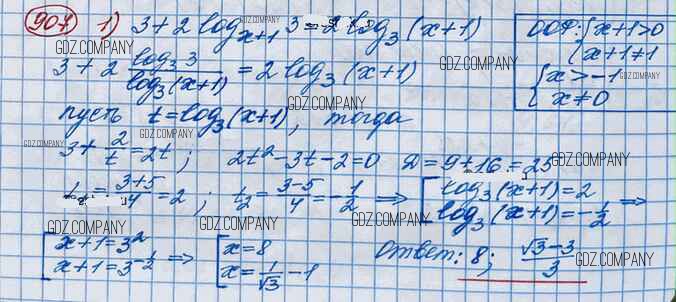 907 1) 3+2log_{x+1} 3=2log_3(x+1)
ООФ: {x+1>0
{x+1≠1
{x>-1
{x≠0
3+2 log_3 3/log_3(x+1) = 2log_3(x+1)
пусть t=log_3(x+1), тогда
3+2/t=2t; 2t²-3t-2=0 D=9+16=25
t_1=(3+5)/4=2; t_2=(3-5)/4=-1/2 ⇒ [log_3(x+1)=2
[log_3(x+1)=-1/2 ⇒
[x+1=3²
[x+1=3^{-1/2} ⇒ [x=8
[x=1/√3-1
Ответ: 8; (√3-3)/3
GDZ.COMPANY
GDZ.COMPANY
GDZ.COMPANY
GDZ.COMPANY
GDZ.COMPANY
GDZ.COMPANY
GDZ.COMPANY
GDZ.COMPANY
GDZ.COMPANY
GDZ.COMPANY
GDZ.COMPANY
GDZ.COMPANY
GDZ.COMPANY
GDZ.COMPANY